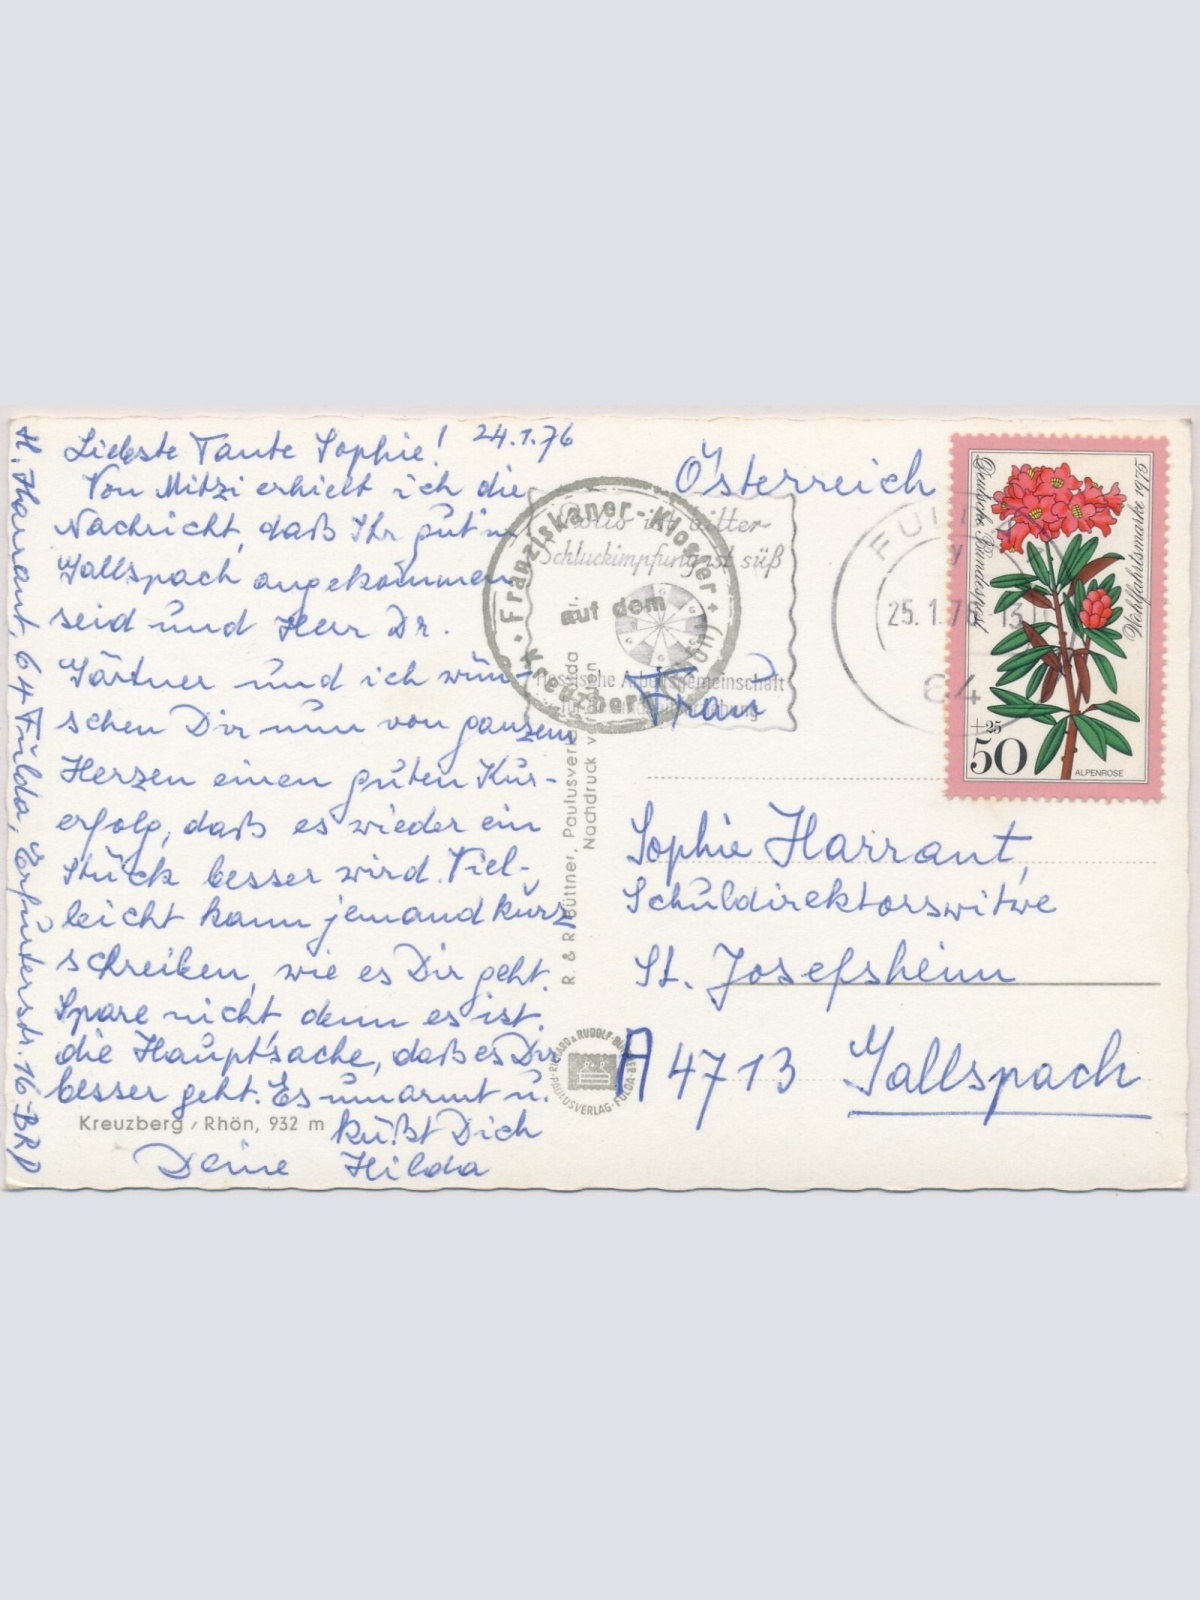 Liebste Tante Sophie! 24.1.76
Von Mitzi erhielt ich die
Nachricht, daß Ihr gut in
Gallspach angekommen
seid und Herr Dr.
Gärtner und ich wün-
schen Dir nun von ganzem
Herzen einen guten Kur-
erfolg, daß es wieder ein
Stück besser wird. Viel-
leicht kann jemand kurz
schreiben, wie es Dir geht.
Spare nicht, denn es ist
die Hauptsache, daß es Dir
besser geht. Es umarmt u.
küßt Dich
Deine Hilda
H. Harrant, 64 Fulda, Erfurterstr. 16-BRD
Kreuzberg / Rhön, 932 m
R. & R. Büttner, Paulusverlag Fulda
Nachdruck
RICHARD & RUDOLF BÜTTNER
PAULUSVERLAG · FULDA
Franziskaner-Kloster
auf dem
Kreuzberg (Rhön)
ist bitter
Schluckimpfung ist süß
Hessische Arbeitsgemeinschaft
FULDA
25.1.76-13
64
Deutsche Bundespost
Wohlfahrtsmarke 1975
+25
50
ALPENROSE
Österreich
Frau
Sophie Harrant,
Schuldirektorswitwe
St. Josefsheim
A 4713 Gallspach